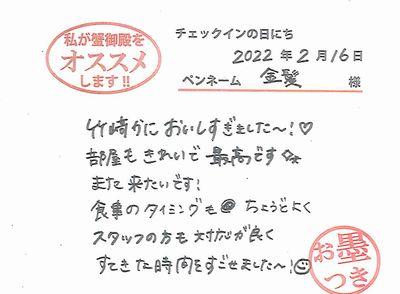 私が蟹御殿を
オススメ
します!!
チェックインの日にち
2022 年 2月16日
ペンネーム 金髪 様
竹崎かに おいしすぎました〜!♡
部屋も きれいで 最高です
また 来たいです!
食事の タイミングも ちょうどよく
スタッフの方も 対応が良く
すてきな時間をすごせました〜!
お墨つき